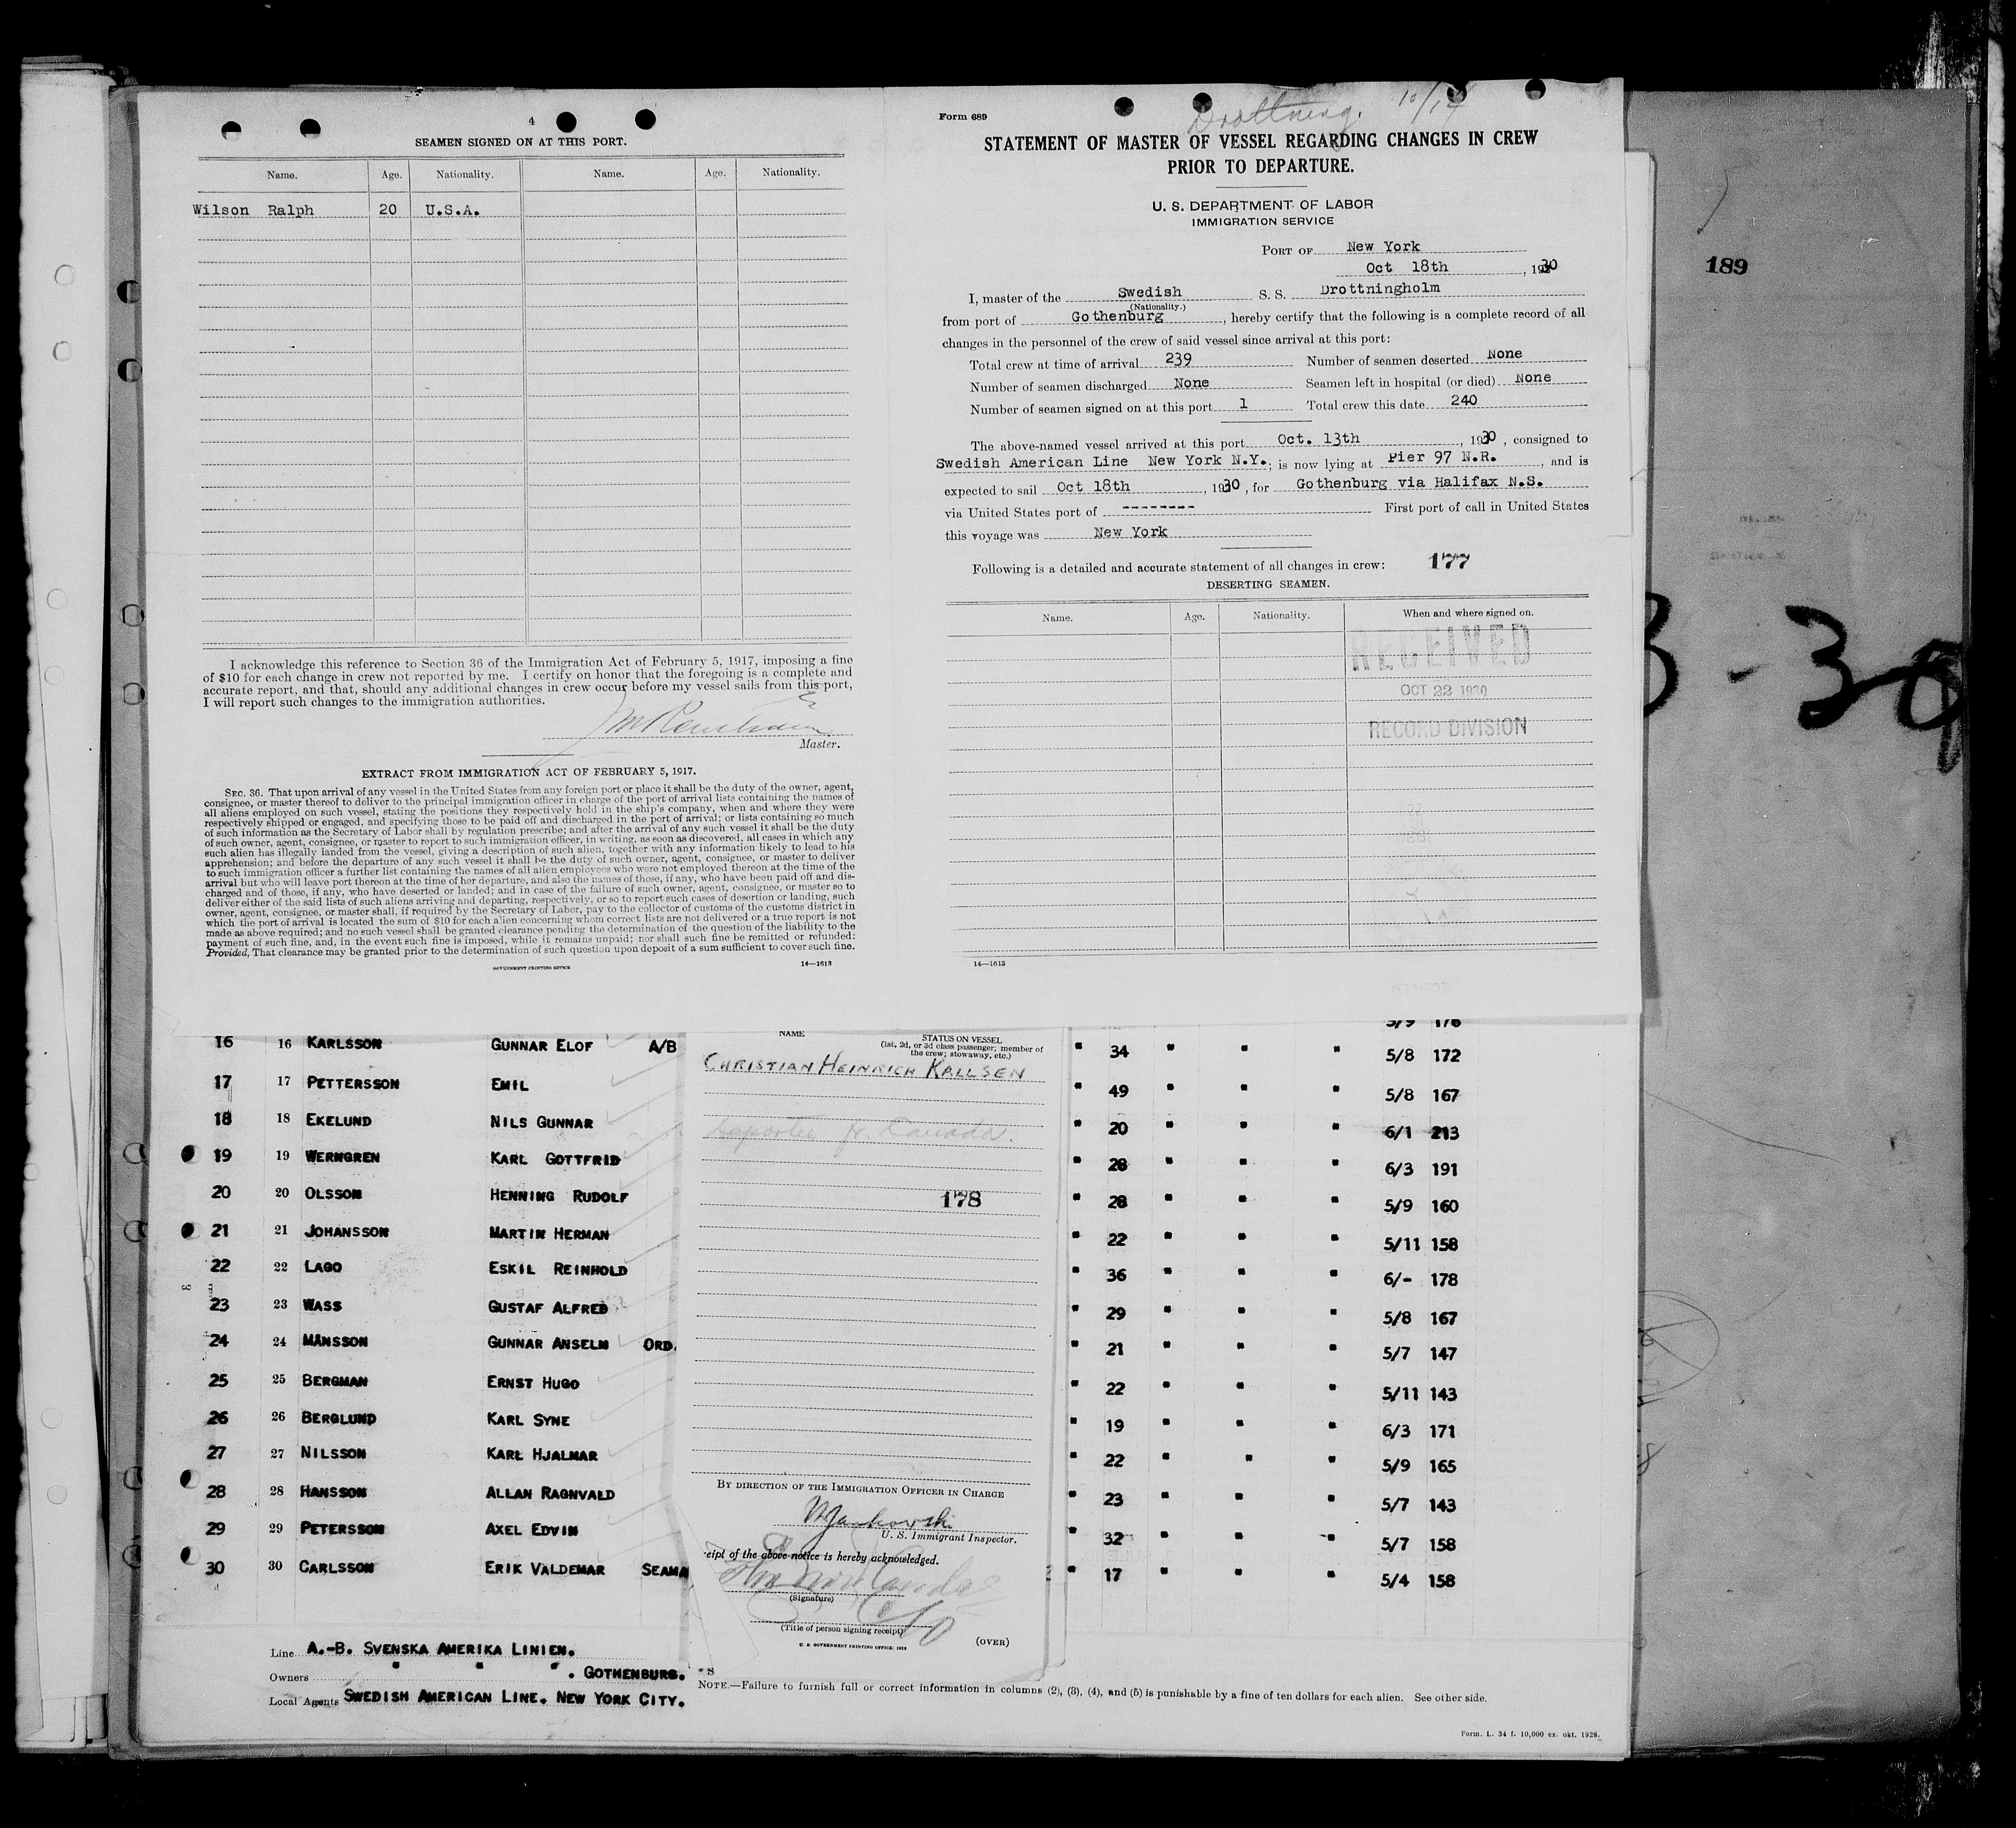 4
SEAMEN SIGNED ON AT THIS PORT.
Name. Age. Nationality. Name. Age. Nationality.
Wilson Ralph 20 U.S.A.
I acknowledge this reference to Section 36 of the Immigration Act of February 5, 1917, imposing a fine
of $10 for each change in crew not reported by me. I certify on honor that the foregoing is a complete and
accurate report, and that, should any additional changes in crew occur before my vessel sails from this port,
I will report such changes to the immigration authorities.
Master.
EXTRACT FROM IMMIGRATION ACT OF FEBRUARY 5, 1917.
SEC. 36. That upon arrival of any vessel in the United States from any foreign port or place it shall be the duty of the owner, agent,
consignee, or master thereof to deliver to the principal immigration officer in charge of the port of arrival lists containing the names of
all aliens employed on such vessel, stating the positions they respectively hold in the ship's company, when and where they were
respectively shipped or engaged, and specifying those to be paid off and discharged in the port of arrival; or lists containing so much
of such information as the Secretary of Labor shall by regulation prescribe; and after the arrival of any such vessel it shall be the duty
of such owner, agent, consignee, or master to report to such immigration officer, in writing, as soon as discovered, all cases in which any
such alien has illegally landed from the vessel, giving a description of such alien, together with any information likely to lead to his
apprehension; and before the departure of any such vessel it shall be the duty of such owner, agent, consignee, or master to deliver
to such immigration officer a further list containing the names of all alien employees who were not employed thereon at the time of the
arrival but who will leave port thereon at the time of her departure, and also the names of those, if any, who have been paid off and dis-
charged and of those, if any, who have deserted or landed; and in case of the failure of such owner, agent, consignee, or master so to
deliver either of the said lists of such aliens arriving and departing, respectively, or so to report such cases of desertion or landing, such
owner, agent, consignee, or master shall, if required by the Secretary of Labor, pay to the collector of customs of the customs district in
which the port of arrival is located the sum of $10 for each alien concerning whom correct lists are not delivered or a true report is not
made as above required; and no such vessel shall be granted clearance pending the determination of the question of the liability to the
payment of such fine, and, in the event such fine is imposed, while it remains unpaid; nor shall such fine be remitted or refunded:
Provided, That clearance may be granted prior to the determination of such question upon deposit of a sum sufficient to cover such fine.
GOVERNMENT PRINTING OFFICE 14—1613
Form 689
Drottning. 10/14
STATEMENT OF MASTER OF VESSEL REGARDING CHANGES IN CREW
PRIOR TO DEPARTURE.
U. S. DEPARTMENT OF LABOR
IMMIGRATION SERVICE
PORT OF New York
Oct 18th, 1930
I, master of the Swedish S. S. Drottningholm
(Nationality.)
from port of Gothenburg, hereby certify that the following is a complete record of all
changes in the personnel of the crew of said vessel since arrival at this port:
Total crew at time of arrival 239 Number of seamen deserted None
Number of seamen discharged None Seamen left in hospital (or died) None
Number of seamen signed on at this port 1 Total crew this date 240
The above-named vessel arrived at this port Oct. 13th, 1930, consigned to
Swedish American Line New York N.Y.; is now lying at Pier 97 N.R., and is
expected to sail Oct 18th, 1930, for Gothenburg via Halifax N.S.
via United States port of -------- First port of call in United States
this voyage was New York
Following is a detailed and accurate statement of all changes in crew: 177
DESERTING SEAMEN.
Name. Age. Nationality. When and where signed on.
RECEIVED
OCT 22 1930
RECORD DIVISION
14—1613
189
3-30
5/9 176
16 16 KARLSSON GUNNAR ELOF A/B " 34 " " " 5/8 172
17 17 PETTERSSON EMIL " 49 " " " 5/8 167
18 18 EKELUND NILS GUNNAR " 20 " " " 6/1 213
19 19 WERNGREN KARL GOTTFRID " 28 " " " 6/3 191
20 20 OLSSON HENNING RUDOLF " 28 " " " 5/9 160
21 21 JOHANSSON MARTIN HERMAN " 22 " " " 5/11 158
22 22 LAGO ESKIL REINHOLD " 36 " " " 6/- 178
23 23 WASS GUSTAF ALFRED " 29 " " " 5/8 167
24 24 MÅNSSON GUNNAR ANSELM ORD. " 21 " " " 5/7 147
25 25 BERGMAN ERNST HUGO " 22 " " " 5/11 143
26 26 BERGLUND KARL SYNE " 19 " " " 6/3 171
27 27 NILSSON KARL HJALMAR " 22 " " " 5/9 165
28 28 HANSSON ALLAN RAGNVALD " 23 " " " 5/7 143
29 29 PETERSSON AXEL EDVIN " 32 " " " 5/7 158
30 30 CARLSSON ERIK VALDEMAR SEAMA " 17 " " " 5/4 158
NAME STATUS ON VESSEL
(1st, 2d, or 3d class passenger; member of
the crew; stowaway, etc.)
CHRISTIAN HEINRICH KALLSEN
Deportee fr. Canada.
178
BY DIRECTION OF THE IMMIGRATION OFFICER IN CHARGE
U. S. Immigrant Inspector.
eipt of the above notice is hereby acknowledged.
(Signature)
(Title of person signing receipt)
U. S. GOVERNMENT PRINTING OFFICE: 1929
(OVER)
Line A.-B. SVENSKA AMERIKA LINIEN.
Owners " " ". GOTHENBURG.
Local Agents SWEDISH AMERICAN LINE. NEW YORK CITY.
NOTE.—Failure to furnish full or correct information in columns (2), (3), (4), and (5) is punishable by a fine of ten dollars for each alien. See other side.
Form. L. 34 f. 10,000 ex. okt. 1928.